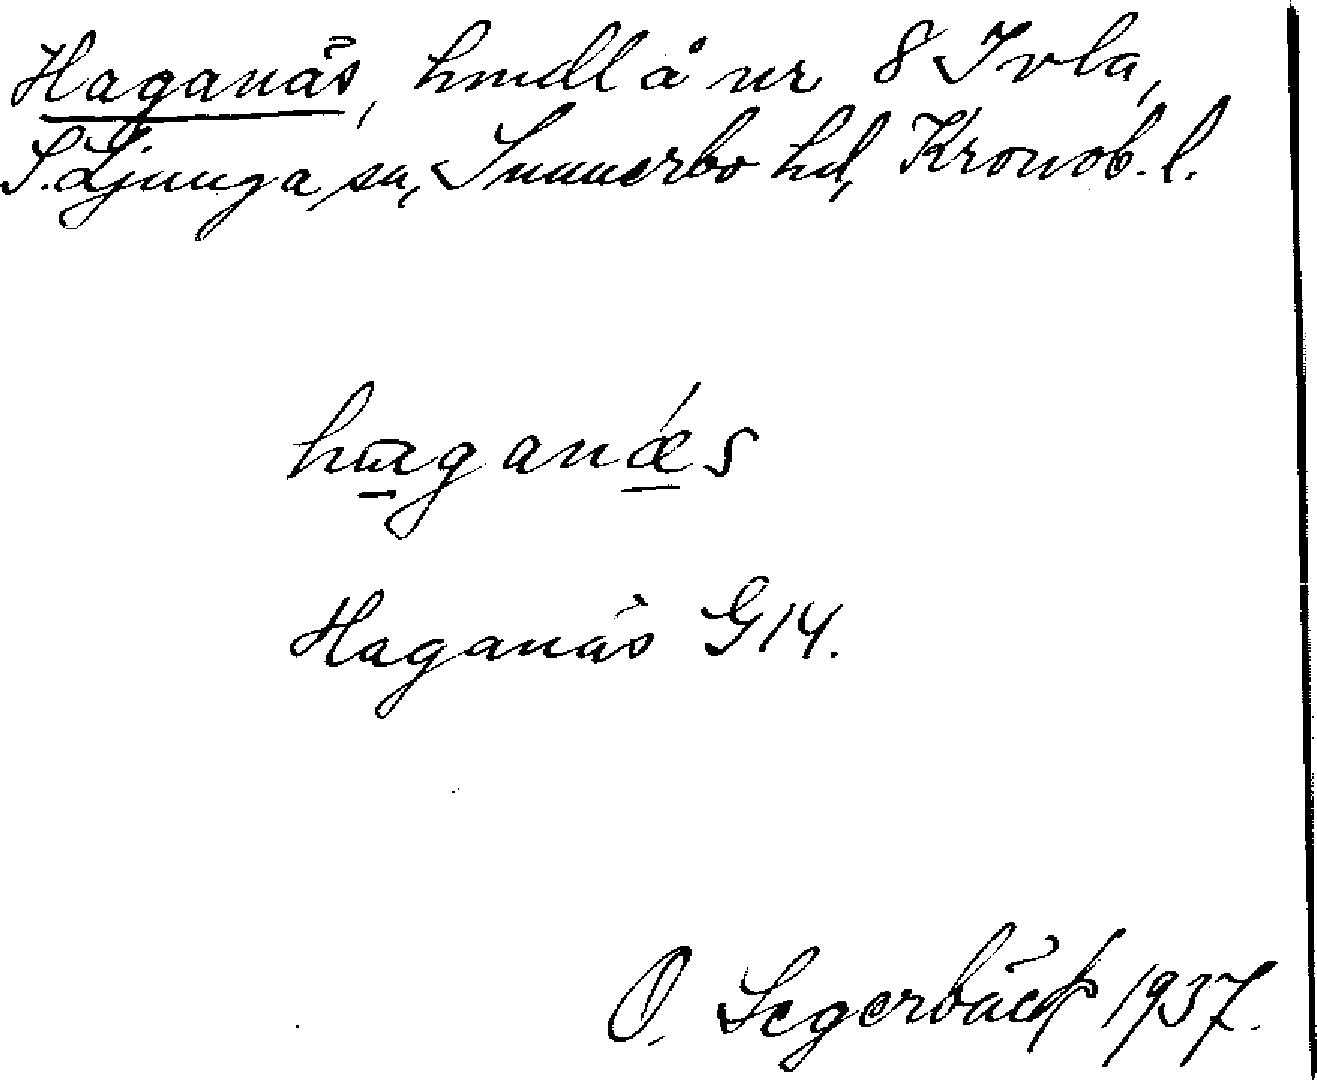 Haganäs, hmdl å nr 8 Ivla,
S. Ljunga sn, Sunnerbo hd, Kronob. l.
haganæ´s
Haganäs G14.
O. Segerbäck 1937.